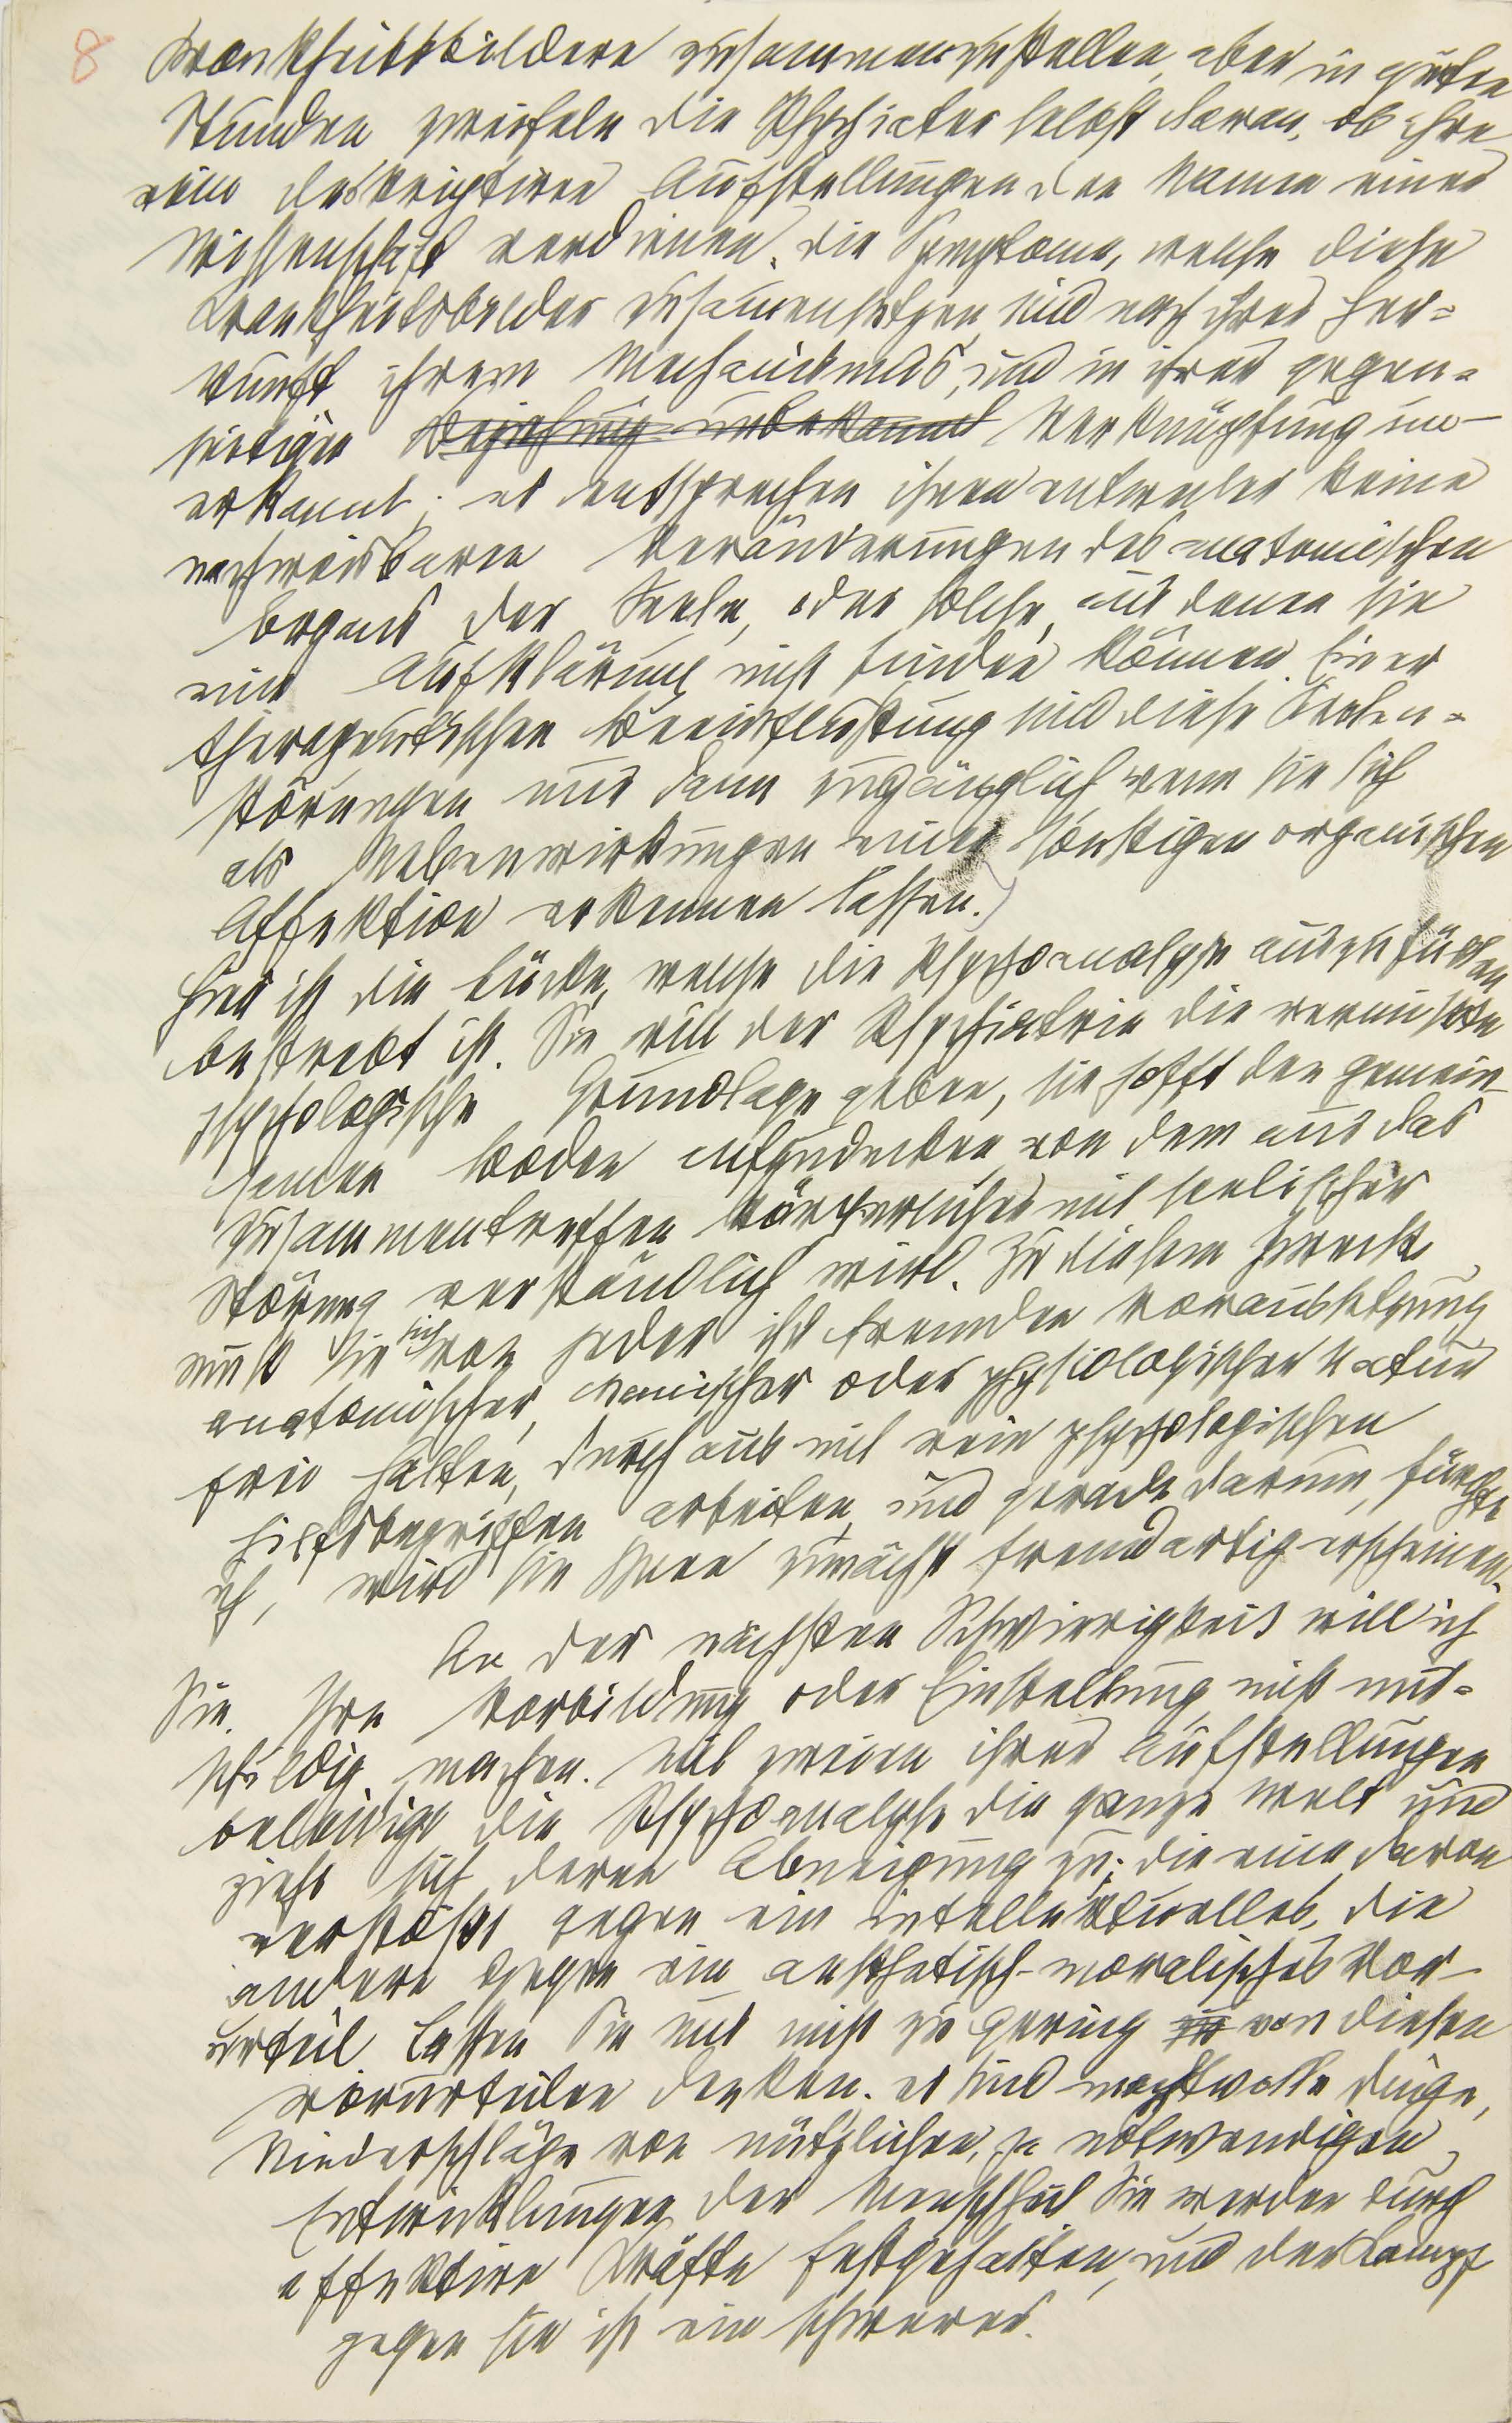 8
Krankheitsbildern zusammenzustellen, aber in guten
Stunden zweifeln die Psychiater selbst daran, ob ihre
rein deskriptiven Aufstellungen den Namen einer
Wissenschaft verdienen. Die Symptome, welche diese
Krankheitsbilder zusamensetzen, sind nach ihrer Her=
kunft ihrem Mechanismus, und in ihrer gegen=
seitigen Beziehung unbekannt Verknüpfung un-
erkannt; es entsprechen ihnen entweder keine
nachweisbaren Veränderungen des anatomischen
Organs der Seele, oder solche, aus denen sie
eine Aufklärung nicht finden können. Einer
therapeutischen Beeinflussung sind diese Seelen=
störungen nur dann zugänglich wenn sie sich
als Nebenwirkungen einer sonstigen organischen
Affektion erkennen lassen.
Hier ist die Lücke, welche die Psychoanalyse auszufüllen
bestrebt ist. Sie will der Psychiatrie die vermißte
psychologische Grundlage geben, sie hofft den gemein-
samen Boden aufzudecken von dem aus das
Zusammentreffen körperlicher mit seelischer
Störung verständlich wird. Zu diesem Zweck
muß sie sich von jeder ihr fremden Voraussetzung
anatomischer, chemischer oder physiologischer Natur
frei halten, durchaus mit rein psychologischen
Hilfsbegriffen arbeiten, und gerade darum, fürchte
ich, wird sie Ihnen zunächst fremdartig erscheinen.
An der nächsten Schwierigkeit will ich
Sie, Ihre Vorbildung oder Einstellung nicht mit=
schuldig machen. Mit zweien ihrer Aufstellungen
beleidigt die Psychoanalyse die ganze Welt und
zieht sich deren Abneigung zu; die eine davon
verstößt gegen ein intellektuelles, die
andere gegen ein aesthetisch-moralisches Vor-
urteil. Lassen Sie uns nicht zu gering zu von diesen
Vorurteilen denken. es sind machtvolle Dinge,
Niederschläge von nützlichen, ja notwendigen
Entwicklungen der Menschheit Sie werden durch
affektive Kräfte festgehalten, und der Kampf
gegen sie ist ein schwerer.